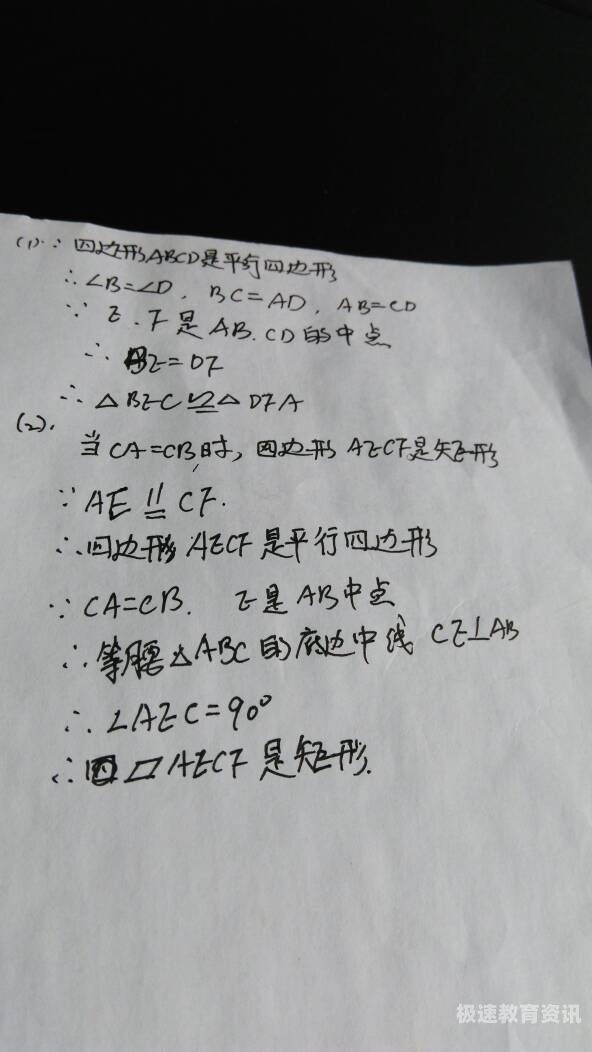 (1)∵ 四边形ABCD是平行四边形
∴∠B=∠D, BC=AD, AB=CD
∵ E.F是AB.CD的中点
∴ BE=DF
∴ △BEC≌△DFA
(2).
当CA=CB时, 四边形AECF是矩形
∵ AE∥=CF.
∴四边形AECF是平行四边形
∵ CA=CB. E是AB中点
∴等腰△ABC的底边中线CE⊥AB
∴ ∠AEC=90°
∴ ▱AECF是矩形.
极速教育资讯